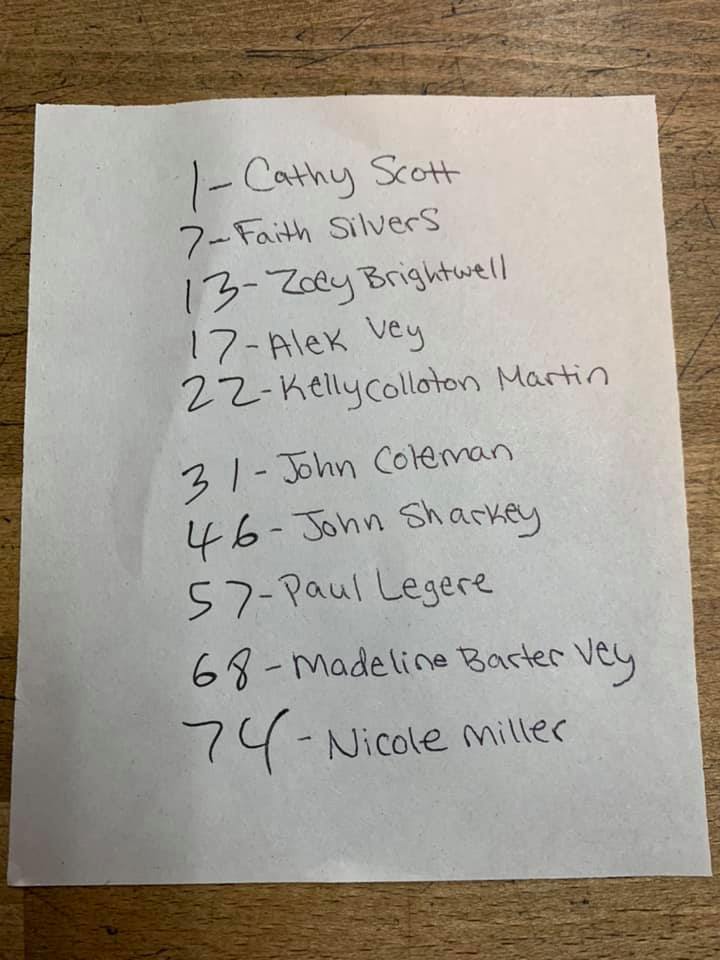 1- Cathy Scott
7- Faith Silvers
13- Zoey Brightwell
17- Alek Vey
22- Kellycolloton Martin
31- John Coleman
46- John Sharkey
57- Paul Legere
68- Madeline Barter Vey
74- Nicole Miller